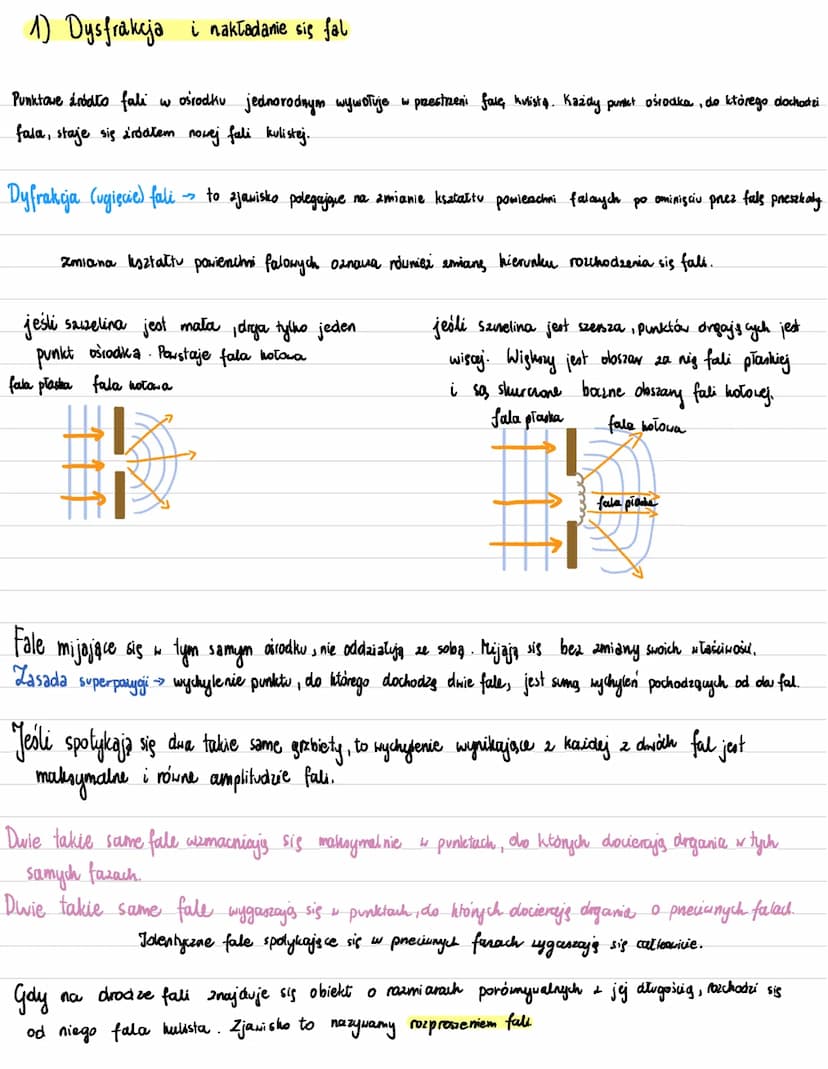 1) Dysfrakcja i nakładanie się fal
Punktowe źródło fali w ośrodku jednorodnym wywołuje w przestrzeni falę kulistą. Każdy punkt ośrodka, do którego dochodzi
fala, staje się źródłem nowej fali kulistej.
Dyfrakcja (ugięcie) fali → to zjawisko polegające na zmianie kształtu powierzchni falowych po ominięciu przez falę przeszkody
zmiana kształtu powierzchni falowych oznacza również zmianę kierunku rozchodzenia się fali.
jeśli szczelina jest mała, drga tylko jeden
punkt ośrodka. Powstaje fala kołowa
fala płaska fala kołowa
jeśli szczelina jest szersza, punktów drgających jest
więcej. Większy jest obszar za nią fali płaskiej
i są skurczone boczne obszary fali kołowej.
fala płaska fala kołowa
fala płaska
Fale mijające się w tym samym ośrodku, nie oddziałują ze sobą. Mijają się bez zmiany swoich właściwości.
Zasada superpozycji → wychylenie punktu, do którego dochodzą dwie fale, jest sumą wychyleń pochodzących od obu fal.
Jeśli spotykają się dwa takie same grzbiety, to wychylenie wynikające z każdej z dwóch fal jest
maksymalne i równe amplitudzie fali.
Dwie takie same fale wzmacniają się maksymalnie w punktach, do których docierają drgania w tych
samych fazach.
Dwie takie same fale wygaszają się w punktach, do których docierają drgania o przeciwnych falach.
Identyczne fale spotykające się w przeciwnych fazach wygaszają się całkowicie.
Gdy na drodze fali znajduje się obiekt o rozmiarach porównywalnych z jej długością, rozchodzi się
od niego fala kulista. Zjawisko to nazywamy rozproszeniem fali